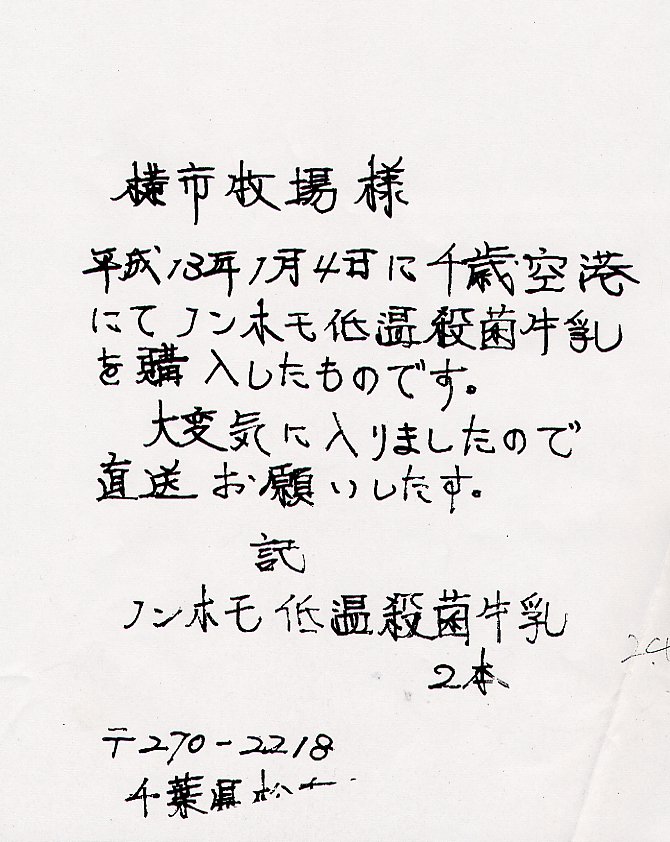 横市牧場様
平成13年1月4日に千歳空港
にてノンホモ低温殺菌牛乳
を購入したものです。
大変気に入りましたので
直送お願いしたす。
記
ノンホモ低温殺菌牛乳
2本
〒270-2218
千葉県松